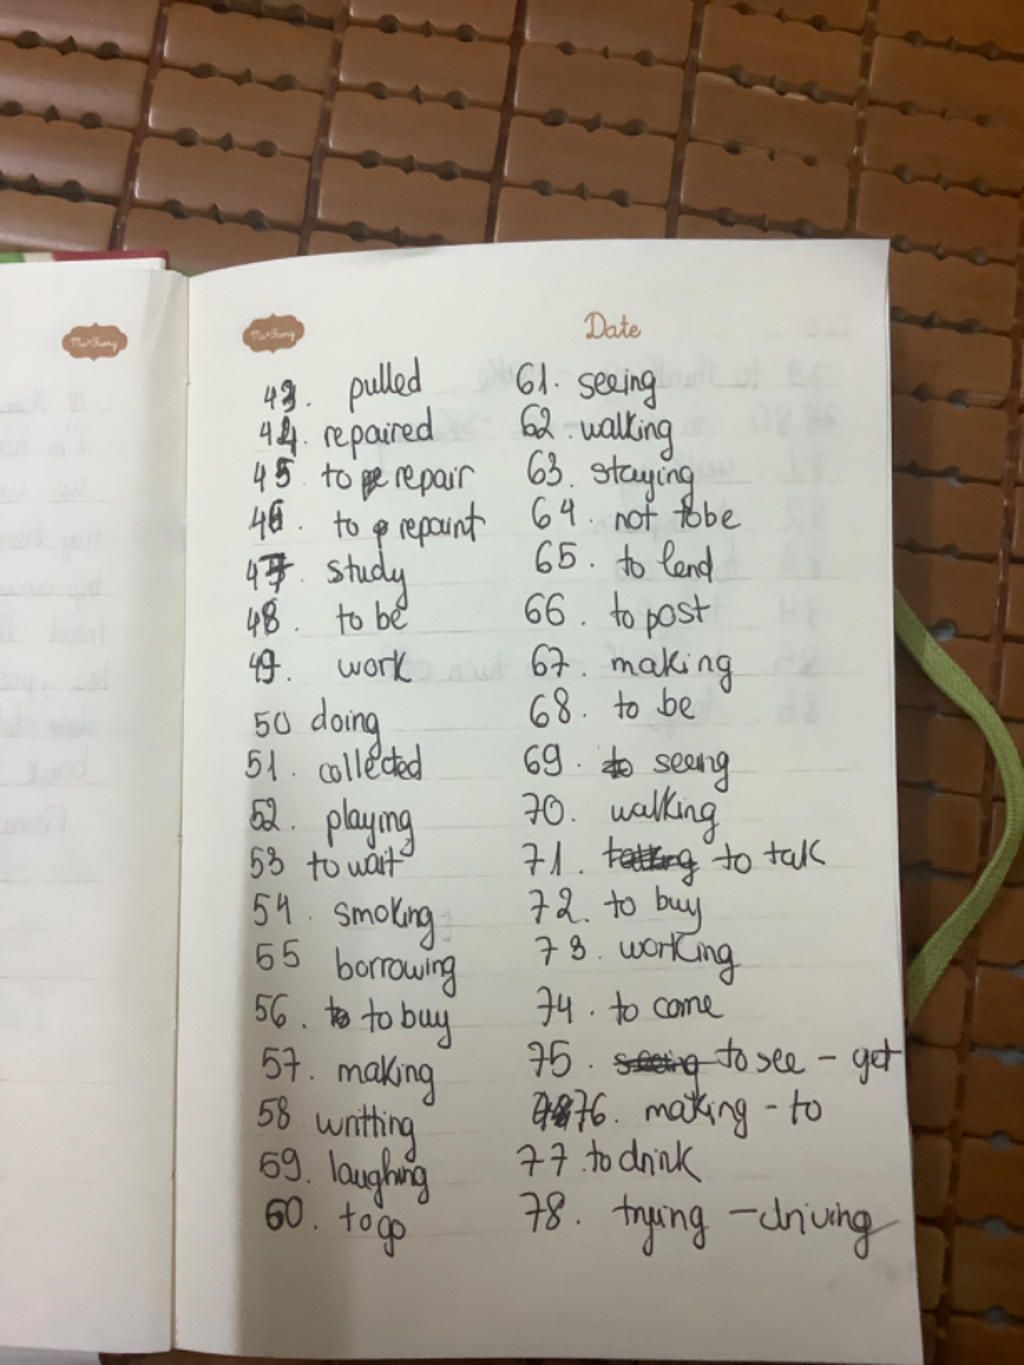 Date
43. pulled
44. repaired
45 to repair
46. to repaint
47. study
48. to be
49. work
50 doing
51. collected
52. playing
53 to wait
54. smoking
55 borrowing
56. to buy
57. making
58 writting
59. laughing
60. to go
61. seeing
62. walking
63. staying
64. not to be
65. to lend
66. to post
67. making
68. to be
69. seeing
70. walking
71. to talk
72. to buy
73. working
74. to come
75. to see - get
76. making - to
77. to drink
78. trying - driving